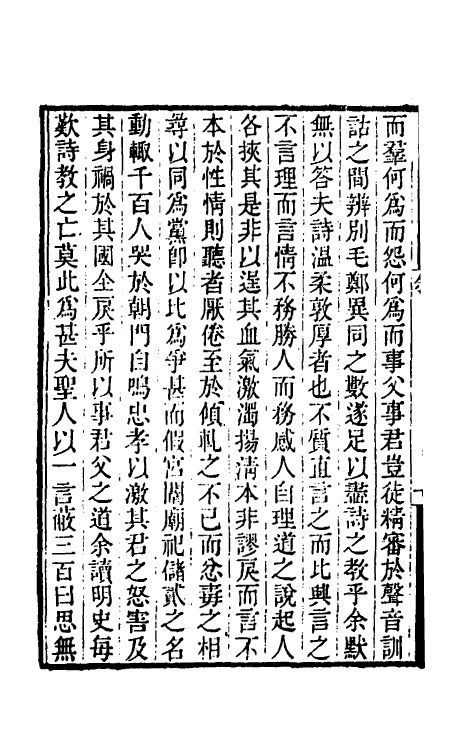 而羣何爲而怨何爲而事父事君豈徒精審於聲音訓
詁之間辨別毛鄭異同之數遂足以盡詩之教乎余默
無以答夫詩溫柔敦厚者也不質直言之而比興言之
不言理而言情不務勝人而務感人自理道之說起人
各挾其是非以逞其血氣激濁揚清本非謬戾而言不
本於性情則聽者厭倦至於傾軋之不已而忿毒之相
尋以同爲黨卽以比爲爭甚而假宮闈廟祀儲貳之名
動輒千百人哭於朝門自鳴忠孝以激其君之怒害及
其身禍於其國全戾乎所以事君父之道余讀明史每
歎詩教之亡莫此爲甚夫聖人以一言蔽三百曰思無